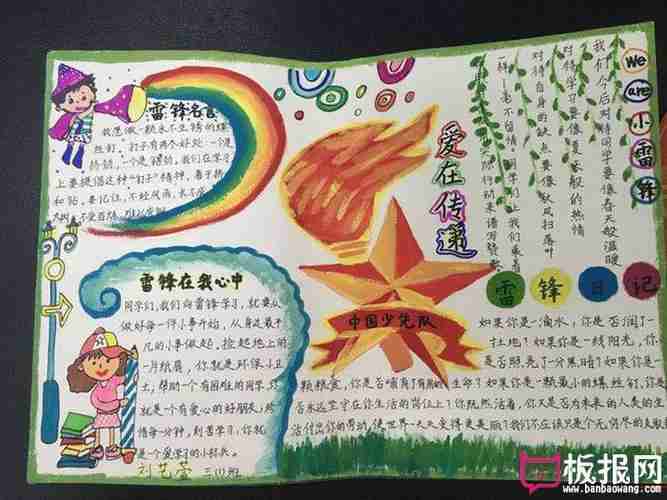 雷锋名言
我愿做一颗永不生锈的螺
丝钉。钉子有两个好处:一个是
挤劲,一个是钻劲,我们在学习
上要提倡这种"钉子"精神,善于挤
和钻。要记住,不经风雨,长不成
大树,不受百炼,难以成钢
雷锋在我心中
同学们,我们向雷锋学习,就要从
做好每一件小事开始,从身边最平
凡的小事做起。捡起地上的
一片纸屑,你就是环保小卫
士,帮助一个有困难的同学,你
就是一个有爱心的好朋友,珍
惜每一分钟,刻苦学习,你就
是一个爱学习的小标兵。
爱在传递
中国少先队
We are 小雷锋
我们今后对待同学要像春天般温暖
对待学习要像夏天般的热情
对待自身的缺点要像秋风扫落叶
一样一毫不留情。同学们让我们乘着
雷锋日记
如果你是一滴水,你是否润了一
寸土地?如果你是一线阳光,你
是否照亮了一分黑暗?如果你是一
颗粮食,你是否哺育了有用的生命?如果你是一颗最小的螺丝钉,你是
否永远坚守在你生活的岗位上?你既然活着,你又是否为未来的人类的生
活付出你的劳动,使世界一天天变得更美丽?我们不应该只是个无穷尽的支取者
板报网
www.banbaowang.com